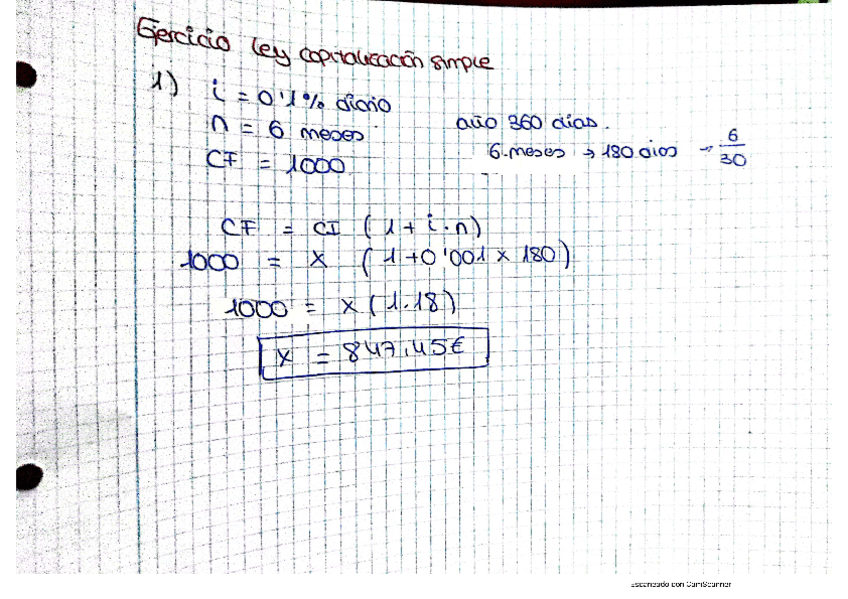 Ejercicio ley capitalización simple
1) i = 0'1% diario
n = 6 meses
año 360 dias.
CF = 1000
6.meses → 180 dias → 6/30
CF = CI (1 + i·n)
1000 = x (1+0'001 x 180)
1000 = x (1.18)
x = 847,45€
Escaneado con CamScanner